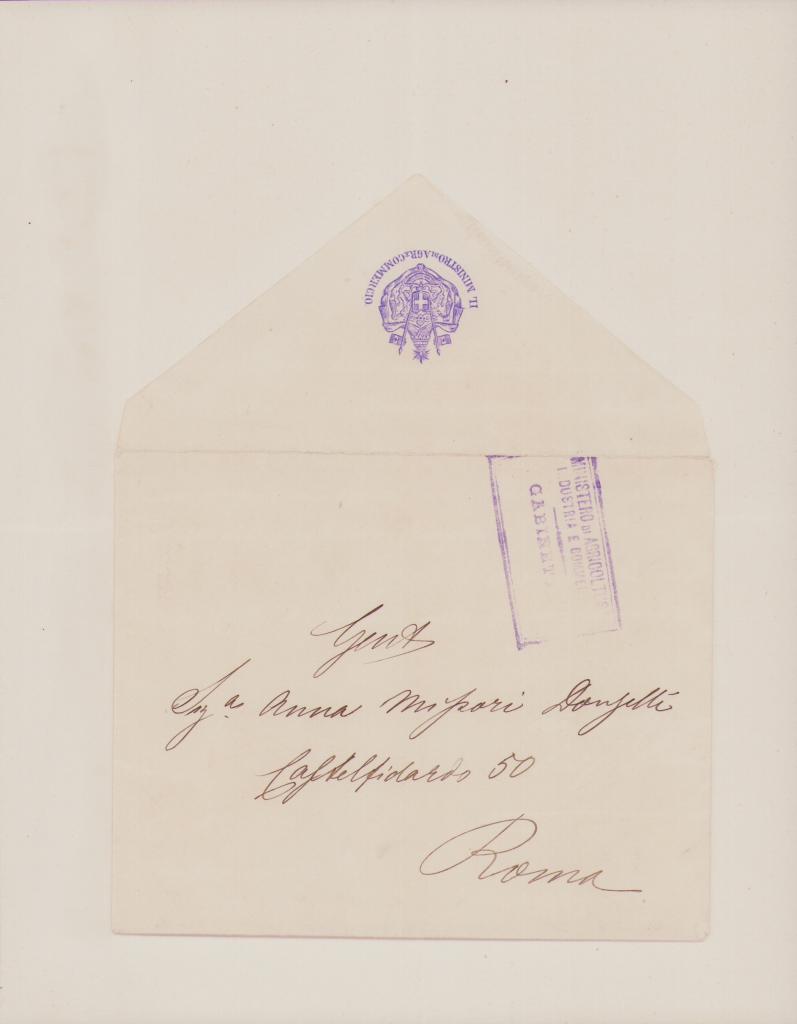 IL MINISTRO DI AGR. E COMMERCIO
MINISTERO DI AGRICOLTUR
I DUSTRIA E COMME
GABINET
Gent
Sig.a Anna Missori Donzelli
Castelfidardo 50
Roma